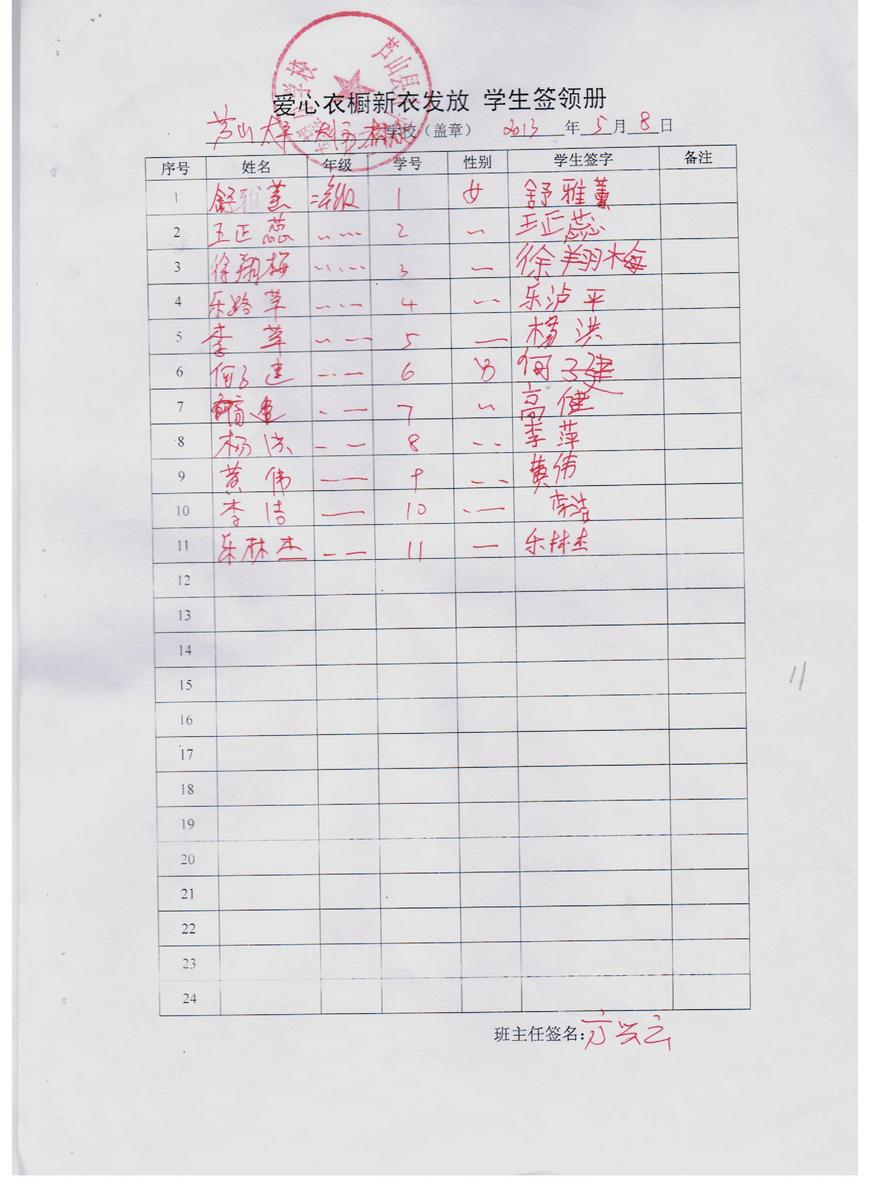 芦山县 学校
爱心衣橱新衣发放 学生签领册
芦山 学校（盖章） 2013年5月8日
序号 姓名 年级 学号 性别 学生签字 备注
1 舒雅薰 二年级 1 女 舒雅薰
2 王正蕊 〃 2 〃 王正蕊
3 徐翔梅 〃 3 〃 徐翔梅
4 乐路苹 〃 4 〃 乐泸平
5 李苹 〃 5 〃 杨洪
6 何子建 〃 6 男 何子建
7 高建 〃 7 〃 高健
8 杨洪 〃 8 〃 李萍
9 黄伟 〃 9 〃 黄伟
10 李洁 〃 10 〃 李洁
11 乐林杰 〃 11 〃 乐林杰
12
13
14
15
11
16
17
18
19
20
21
22
23
24
班主任签名：